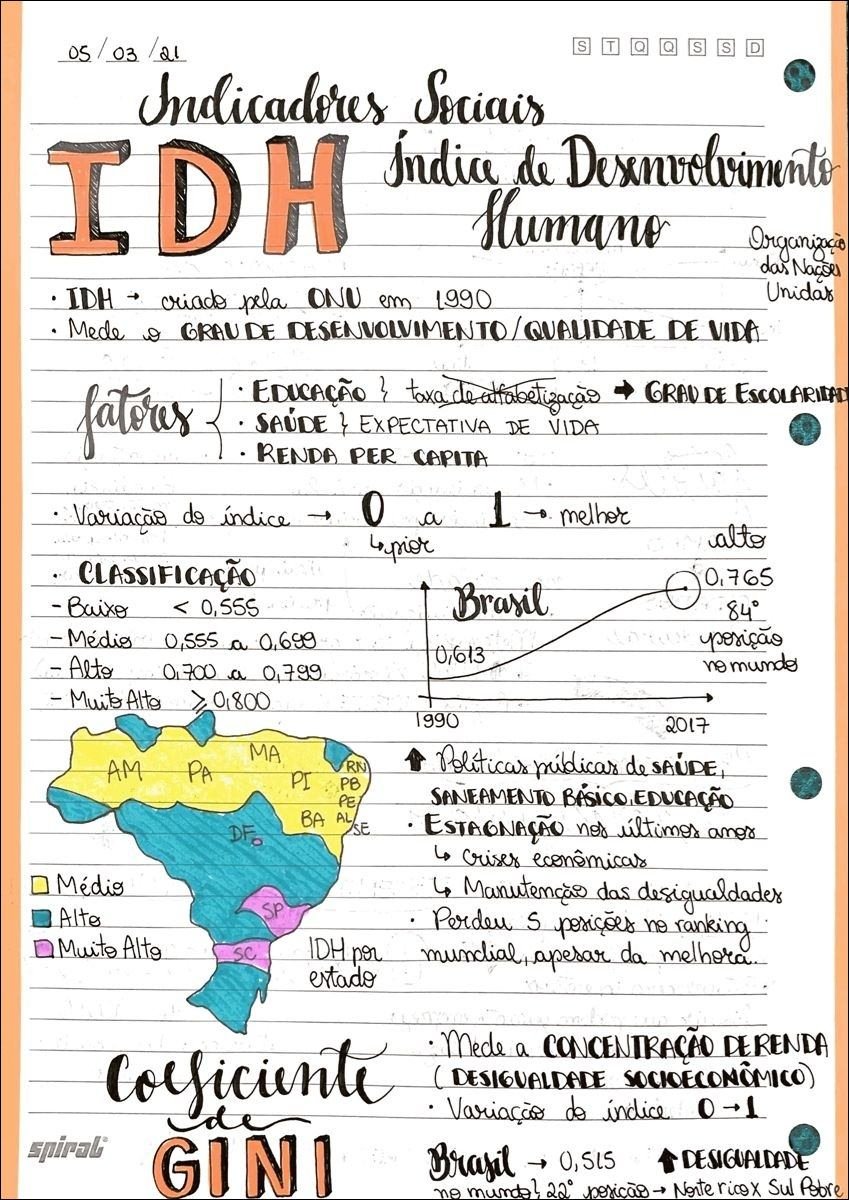 05/03/21
S T Q Q S S D
Indicadores Sociais
IDH Índice de Desenvolvimento
Humano
Organização
das Nações
Unidas
• IDH → criado pela ONU em 1990
• Mede o GRAU DE DESENVOLVIMENTO/QUALIDADE DE VIDA
fatores
• EDUCAÇÃO } taxa de alfabetização → GRAU DE ESCOLARIDAD
• SAÚDE } EXPECTATIVA DE VIDA
• RENDA PER CAPITA
• Variação do índice → 0 a 1 → melhor
↳ pior
• CLASSIFICAÇÃO
- Baixo < 0,555
- Médio 0,555 a 0,699
- Alto 0,700 a 0,799
- Muito Alto ≥ 0,800
Brasil
alto
0,765
84°
posição
no mundo
0,613
1990
2017
AM
PA
MA
PI
RN
PB
PE
BA
AL
SE
DF
SP
SC
Médio
Alto
Muito Alto
IDH por
estado
↑ Políticas públicas de SAÚDE,
SANEAMENTO BÁSICO, EDUCAÇÃO
• ESTAGNAÇÃO nos últimos anos
↳ Crises econômicas
↳ Manutenção das desigualdades
• Perdeu 5 posições no ranking
mundial, apesar da melhora.
Coeficiente
de
GINI
• Mede a CONCENTRAÇÃO DE RENDA
(DESIGUALDADE SOCIOECONÔMICO)
• Variação do índice 0→1
Brasil → 0,515 ↑ DESIGUALDADE
no mundo } 22° posição → Norte rico x Sul Pobre
spiral